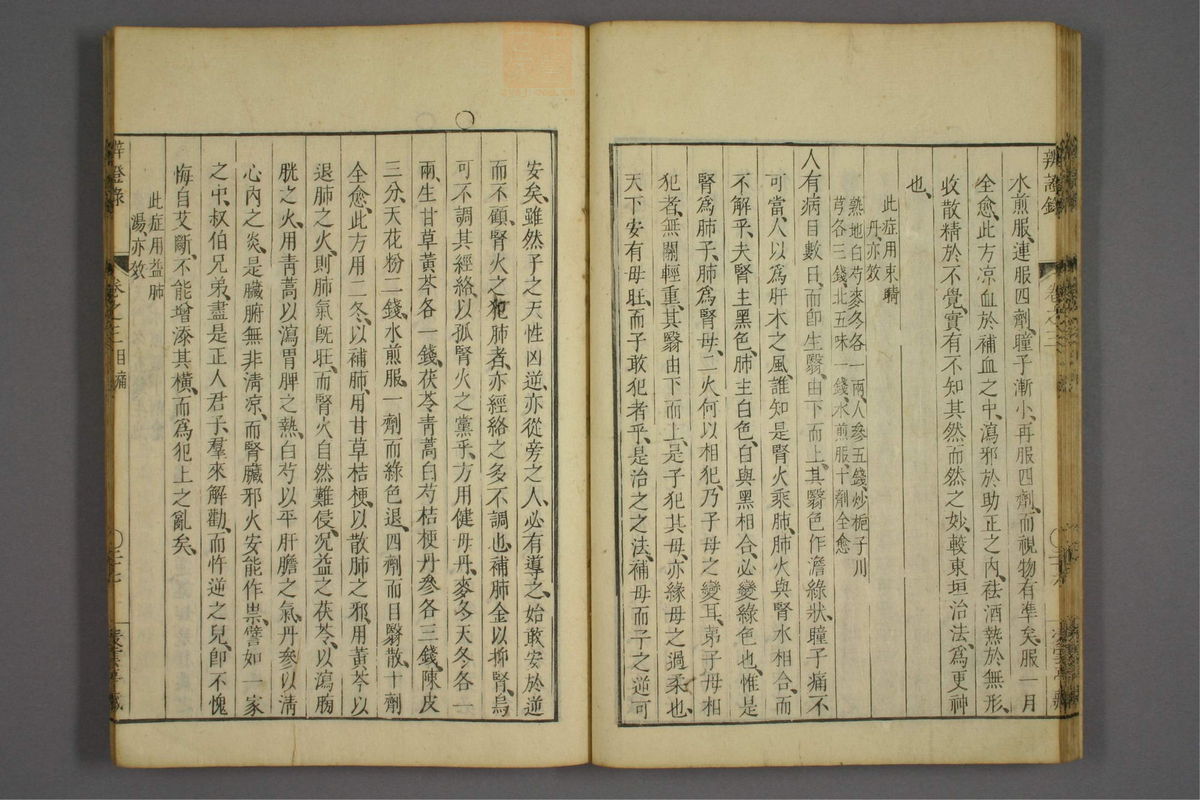 辨證錄
卷之三
水煎服、連服四劑、瞳子漸小、再服四劑、而視物有準矣、服一月
全愈、此方凉血於補血之中、瀉邪於助正之內、祛酒熱於無形、
收散精於不覺、實有不知其然而然之妙、較東垣治法、爲更神
也、
此症用束睛
丹亦效
熟地白芍麥冬各一兩、人參五錢、炒梔子川
芎各三錢、北五味一錢、水煎服、十劑全愈
人有病目數日、而卽生翳、由下而上、其翳色作澹綠狀、瞳子痛不
可當、人以爲肝木之風、誰知是腎火乘肺、肺火與腎水相合、而
不解乎、夫腎主黑色、肺主白色、白與黑相合、必變綠色也、惟是
腎爲肺子、肺爲腎母、二火何以相犯、乃子母之變耳、第子母相
犯者、無關輕重、其翳由下而上、是子犯其母、亦緣母之過柔也、
天下安有母旺、而子敢犯者乎、是治之之法、補母而子之逆可
安矣、雖然子之天性凶逆、亦從旁之人、必有導之、始敢安於逆
而不顧、腎火之犯肺者、亦經絡之多不調也、補肺金以抑腎、烏
可不調其經絡、以孤腎火之黨乎、方用健母丹、麥冬天冬各一
兩、生甘草黃芩各一錢、茯苓青蒿白芍桔梗丹參各三錢、陳皮
三分、天花粉二錢、水煎服、一劑而綠色退、四劑而目翳散、十劑
全愈、此方用二冬、以補肺、用甘草桔梗、以散肺之邪、用黃芩以
退肺之火、則肺氣旣旺、而腎火自然難侵、况益之茯苓、以瀉膀
胱之火、用青蒿以瀉胃脾之熱、白芍以平肝膽之氣、丹參以淸
心內之炎、是臟腑無非淸凉、而腎臟邪火安能作祟、譬如一家
之中、叔伯兄弟、盡是正人君子、羣來解勸、而忤逆之兒、卽不愧
悔自艾、斷不能增添其橫、而爲犯上之亂矣、
此症用益肺
湯亦效
辨證錄
卷之三目痛